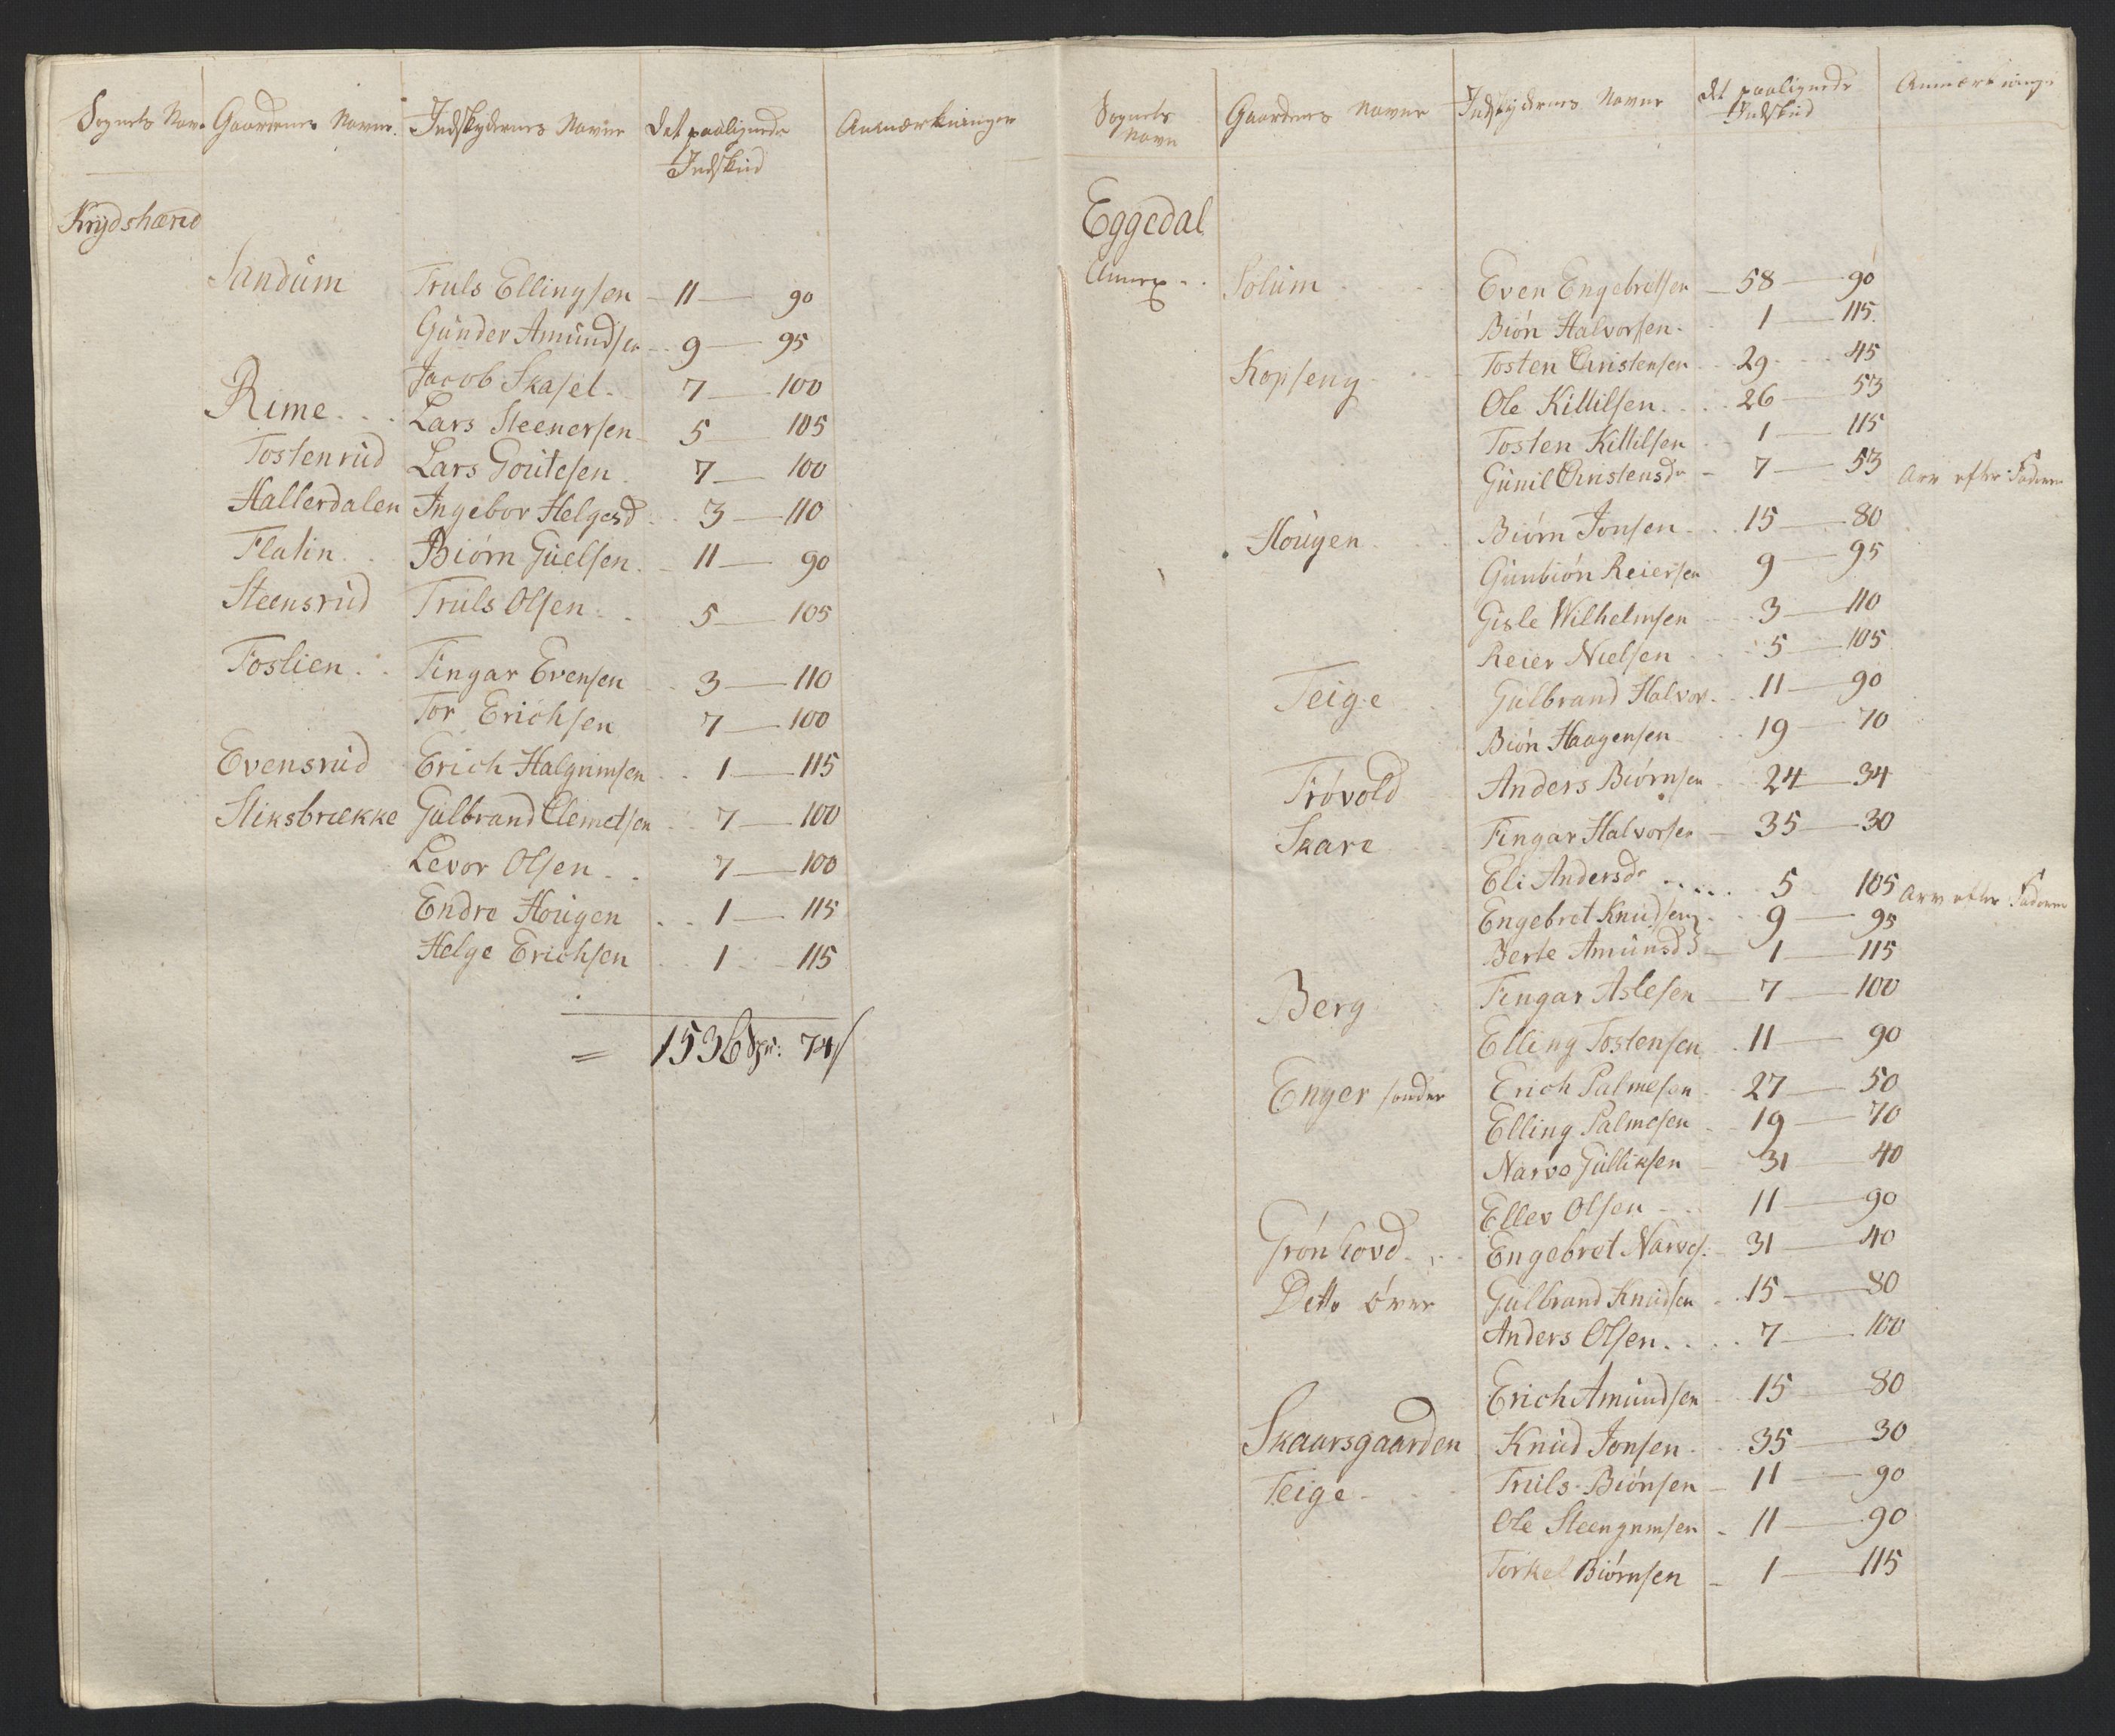 Sognets Navn Gaardenes Navne. Indskydernes Navne Det paalignede Indskud Anmærkninger
Krydshærred
Sandum Truls Ellingsen 11 — 90
Gunder Amundsen 9 — 95
Jacob Skasel 7 — 100
Rime Lars Steenersen 5 — 105
Tostenrud Lars Goutesen 7 — 100
Hallerdalen Ingebor Helgesd 3 — 110
Flatin Biørn Guelsen 11 — 90
Steensrud Truls Olsen 5 — 105
Foslien Fingar Evensen 3 — 110
Tor Erichsen 7 — 100
Evensrud Erich Halgrimsen 1 — 115
Sliksbrække Gulbrand Clemetsen 7 — 100
Levor Olsen 7 — 100
Endre Hougen 1 — 115
Helge Erichsen 1 — 115
= 1536 Spr: 74 s
Sognets Navn Gaardenes Navne Indskydernes Navne Det paalignede Indskud Anmærkninge
Eggedal
Annex Solum Even Engebretsen 58 — 90
Biøn Halvorsen 1 — 115
Kopseng Tosten Christensen 29 45
Ole Killilsen 26 — 53
Tosten Killilsen 1 — 115
Gunil Christensdr 7 — 53 Arv efter Faderen
Hougen Biørn Jonsen 15 — 80
Gunbiøn Reiersen 9 — 95
Gisle Wilhelmsen 3 — 110
Reier Nielsen 5 — 105
Teige Gulbrand Halvor 11 — 90
Biøn Haagensen 19 — 70
Frøvold Anders Biørnsen 24 — 34
Skare Fingar Halvorsen 35 — 30
Eli Andersdr 5 105 Arv efter Faderen
Engebret Knudsen 9 — 95
Berte Amunsd 1 — 115
Berg Fingar Aslesen 7 — 100
Elling Tostensen 11 — 90
Enger sønder Erich Palmesen 27 — 50
Elling Palmesen 19 — 70
Narve Gulliksen 31 — 40
Ellev Olsen 11 — 90
Grønhovd Engebret Narves: 31 — 40
Ditto øvre Gulbrand Knudsen 15 — 80
Anders Olsen 7 — 100
Erich Amundsen 15 80
Skaarsgaarden Knud Jonsen 35 30
Teige Truls Biønsen 11 — 90
Ole Steengrimsen 11 — 90
Torkel Biørnsen 1 — 115